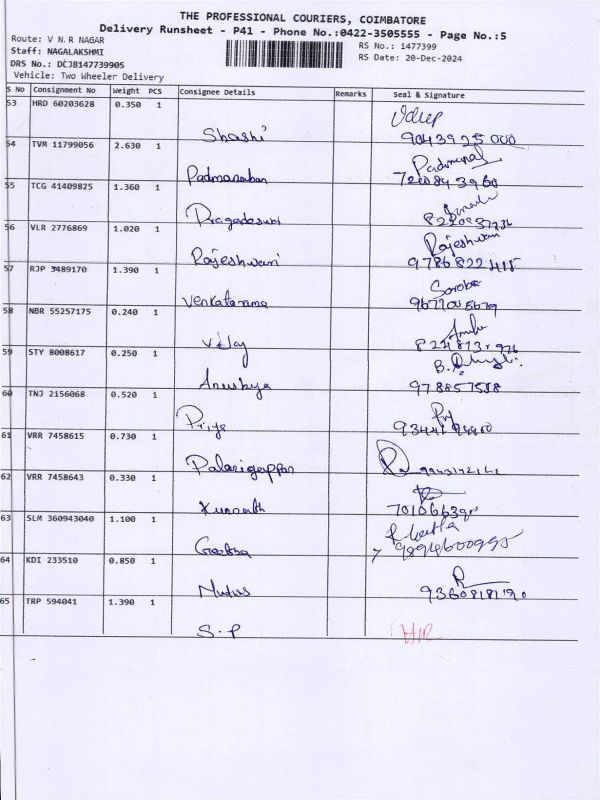 THE PROFESSIONAL COURIERS, COIMBATORE
Delivery Runsheet - P41 - Phone No.:0422-3505555 - Page No.:5
Route: V N.R NAGAR
RS No.: 1477399
Staff: NAGALAKSHMI
RS Date: 20-Dec-2024
DRS No.: DCJ8147739905
Vehicle: Two Wheeler Delivery
S No Consignment No Weight PCS Consignee Details Remarks Seal & Signature
53 HRD 60203628 0.350 1
Shashi 9043925000
54 TVM 11799056 2.630 1 Padmanal
Padmanaban
55 TCG 41409825 1.360 1
56 VLR 2776869 1.020 1 Rajeshwari
Rajeshwari 9786822415
57 RJP 3489170 1.390 1
Venkatarama
58 NBR 55257175 0.240 1
Vijay
59 STY 8008617 0.250 1
Anushya
60 TNJ 2156068 0.520 1
Priya
61 VRR 7458615 0.730 1
Palaniyappan
62 VRR 7458643 0.330 1
63 SLM 360943040 1.100 1
64 KDI 233510 0.850 1
65 TRP 594041 1.390 1
S.P